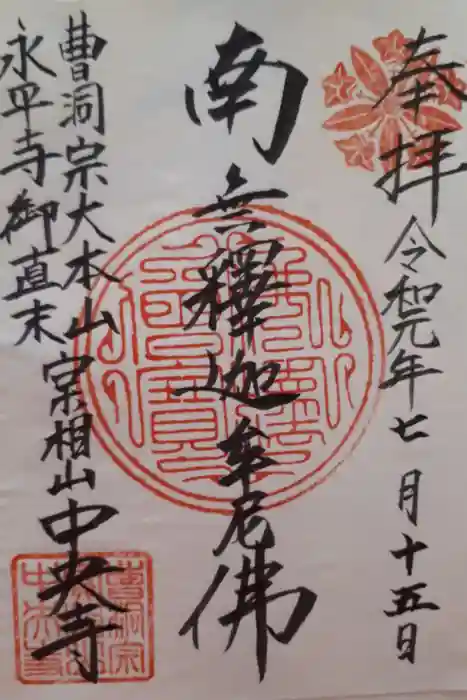 奉拝
令和元年七月十五日
南無釋迦牟尼佛
曹洞宗大本山
永平寺御直末
宗相山中央寺